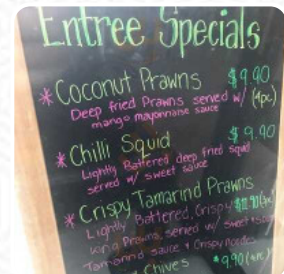 Entree Specials
* Coconut Prawns $9.90
Deep fried Prawns served w/ (4pc)
mango mayonnaise sauce
* Chilli Squid $9.90
Lightly Battered deep fried squid
served w/ sweet sauce
* Crispy Tamarind Prawns
Lightly Battered, Crispy $12.90
King Prawns, served w/ sweet
Tamarind sauce & Crispy noodles
Chives *9.90